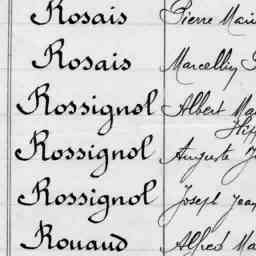 Rosais Pierre Marie
Rosais Marcellin
Rossignol Albert
Hipp
Rossignol Auguste
Rossignol Joseph Jean
Rouaud Alfred